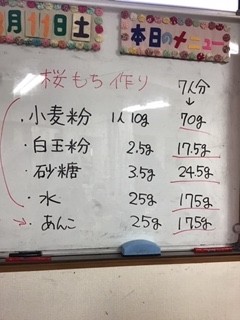 月11日土
本日のメニュー
桜もち作り
7人分
↓
・小麦粉 1人10g 70g
・白玉粉 2.5g 17.5g
・砂糖 3.5g 24.5g
・水 25g 175g
→・あんこ 25g 175g